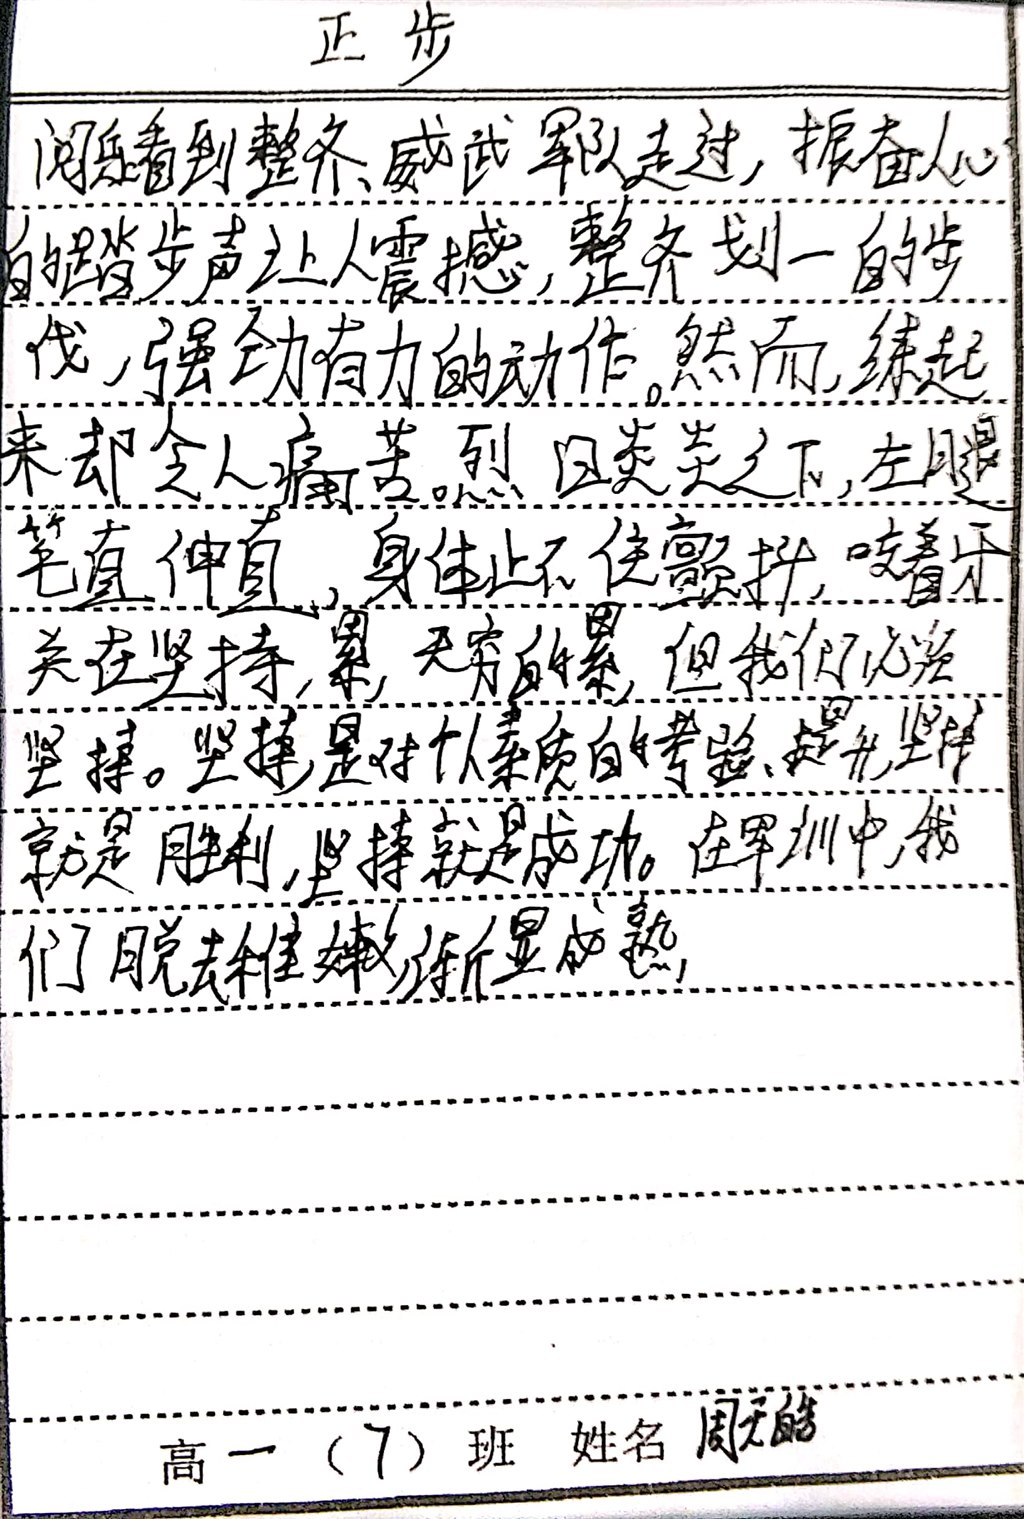 正步
阅兵看到整齐、威武军队走过，振奋人心
的踏步声让人震撼，整齐划一的步
伐，强劲有力的动作。然而，练起
来却令人痛苦。烈日炎炎之下，左腿
笔直伸直，身体止不住颤抖，咬着牙
关在坚持，累，无穷的累，但我们必须
坚持。坚持，是对个人素质的考验、提升，坚持
就是胜利，坚持就是成功。在军训中，我
们脱去稚嫩，渐显成熟，
高一（7）班 姓名 周天皓